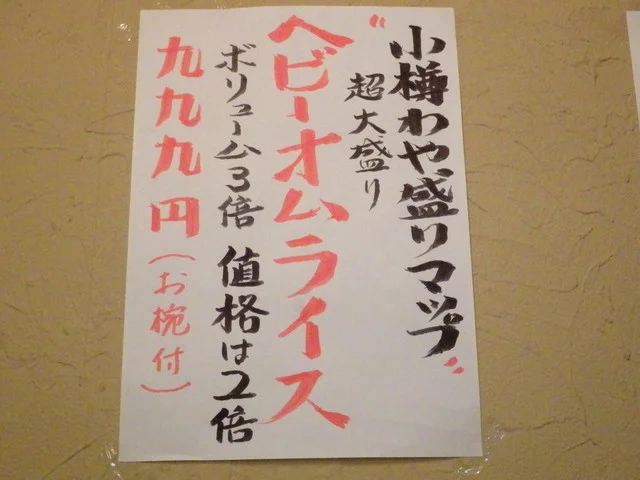 “小樽わや盛りマップ”
超大盛り
ヘビーオムライス
ボリューム3倍 値格は2倍
九九九円(お椀付)